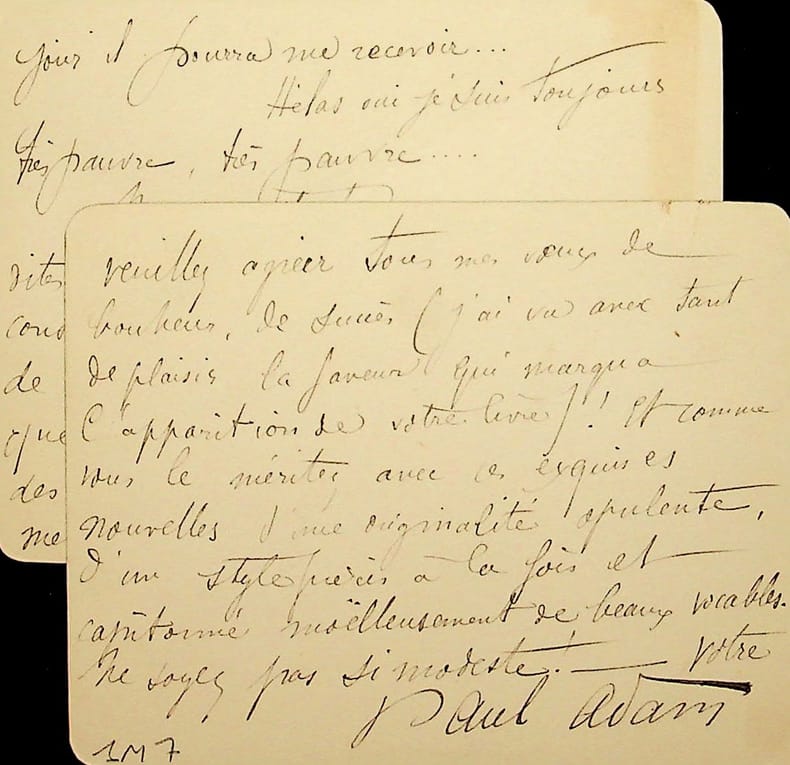 jour il pourra me recevoir...
Hélas oui je suis toujours
très pauvre, très pauvre.....
dites
cons
de
que
des
me
veuillez agréer tous mes vœux de
bonheur, de succès (j'ai vu avec tant
de plaisir la faveur qui marqua
l'apparition de votre livre)! Et comme
vous le méritez avec ces exquises
nouvelles d'une originalité opulente,
d'un style précis à la fois et
capitonné moëlleusement de beaux vocables.
Ne soyez pas si modeste! — votre
Paul Adam
1M7